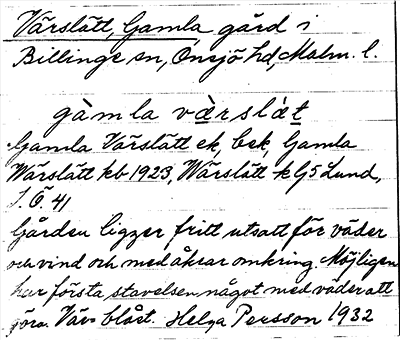 Värslätt, Gamla gård i
Billinge sn, Onsjö hd, Malm. l.
gàmla væ̀rslæ̀t
Gamla Värslätt ek, bek, Gamla
Wärslätt kb 1923, Wärslätt k Gj Lund,
I. Ö. 41
Gården ligger fritt utsatt för väder
och vind och med åkrar omkring. Möjligen
har första stavelsen något med väder att
göra. Vär= blåst. Helga Persson 1932